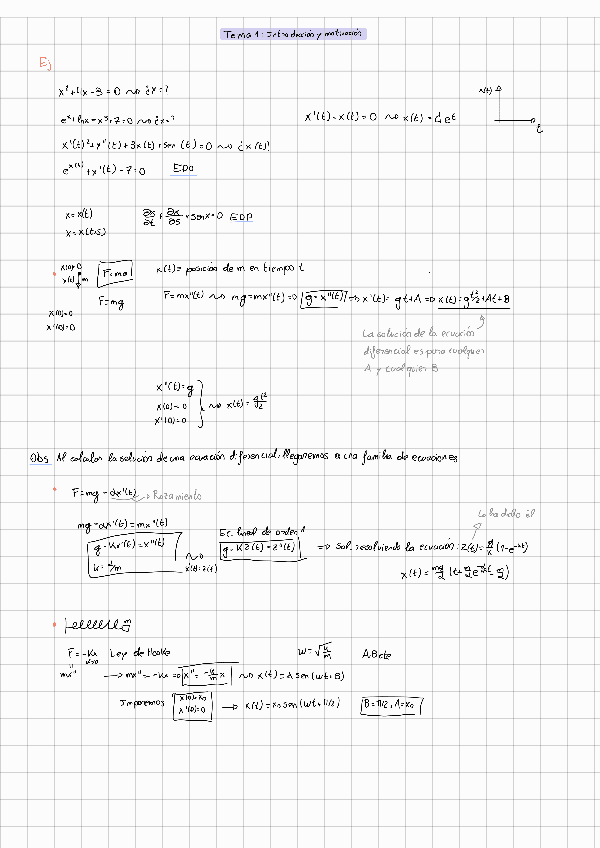 Tema 1: Introducción y motivación
Ej
x² + 4x - 3 = 0 ⇝ ¿x = ?
e^x + ln x - x³ + 7 = 0 ⇝ ¿x = ?
x'(t) - x(t) = 0 ⇝ x(t) = C e^t
x(t)
t
x'(t)² + x''(t) + 3x(t) + sen(t) = 0 ⇝ ¿x(t)?
e^x(t) + x'(t) - 7 = 0 EDO
x = x(t)
x = x(t,s)
∂x/∂t + ∂x/∂s + sen x = 0 EDP
x(0) = 0
x(t) m
F = ma
x(t) = posición de m en tiempo t
F = mg
F = mx''(t) ⇝ mg = mx''(t) => g = x''(t) => x'(t) = gt + A => x(t) = g t²/2 + At + B
x(0) = 0
x'(0) = 0
La solución de la ecuación
diferencial es para cualquier
A y cualquier B
x''(t) = g
x(0) = 0
x'(0) = 0
⇝ x(t) = g t²/2
Obs Al calcular la solución de una ecuación diferencial, llegaremos a una familia de ecuaciones
F = mg - αx'(t) → Rozamiento
Lo ha dado él
mg - αx'(t) = mx''(t)
g - kx'(t) = x''(t)
k = α/m
⇝
x'(t) = z(t)
Ec. lineal de orden 1
g - kz(t) = z'(t)
=> Sol: resolviendo la ecuación: z(t) = g/k (1 - e^-kt)
m
F = -kx Ley de Hooke
k>0
w = √k/m
A, B cte
mx'' → mx'' = -kx => x'' = -k/m x ⇝ x(t) = A sen(wt + B)
Imponemos
x(0) = x₀
x'(0) = 0
→ x(t) = x₀ sen(wt + π/2)
B = π/2, A = x₀